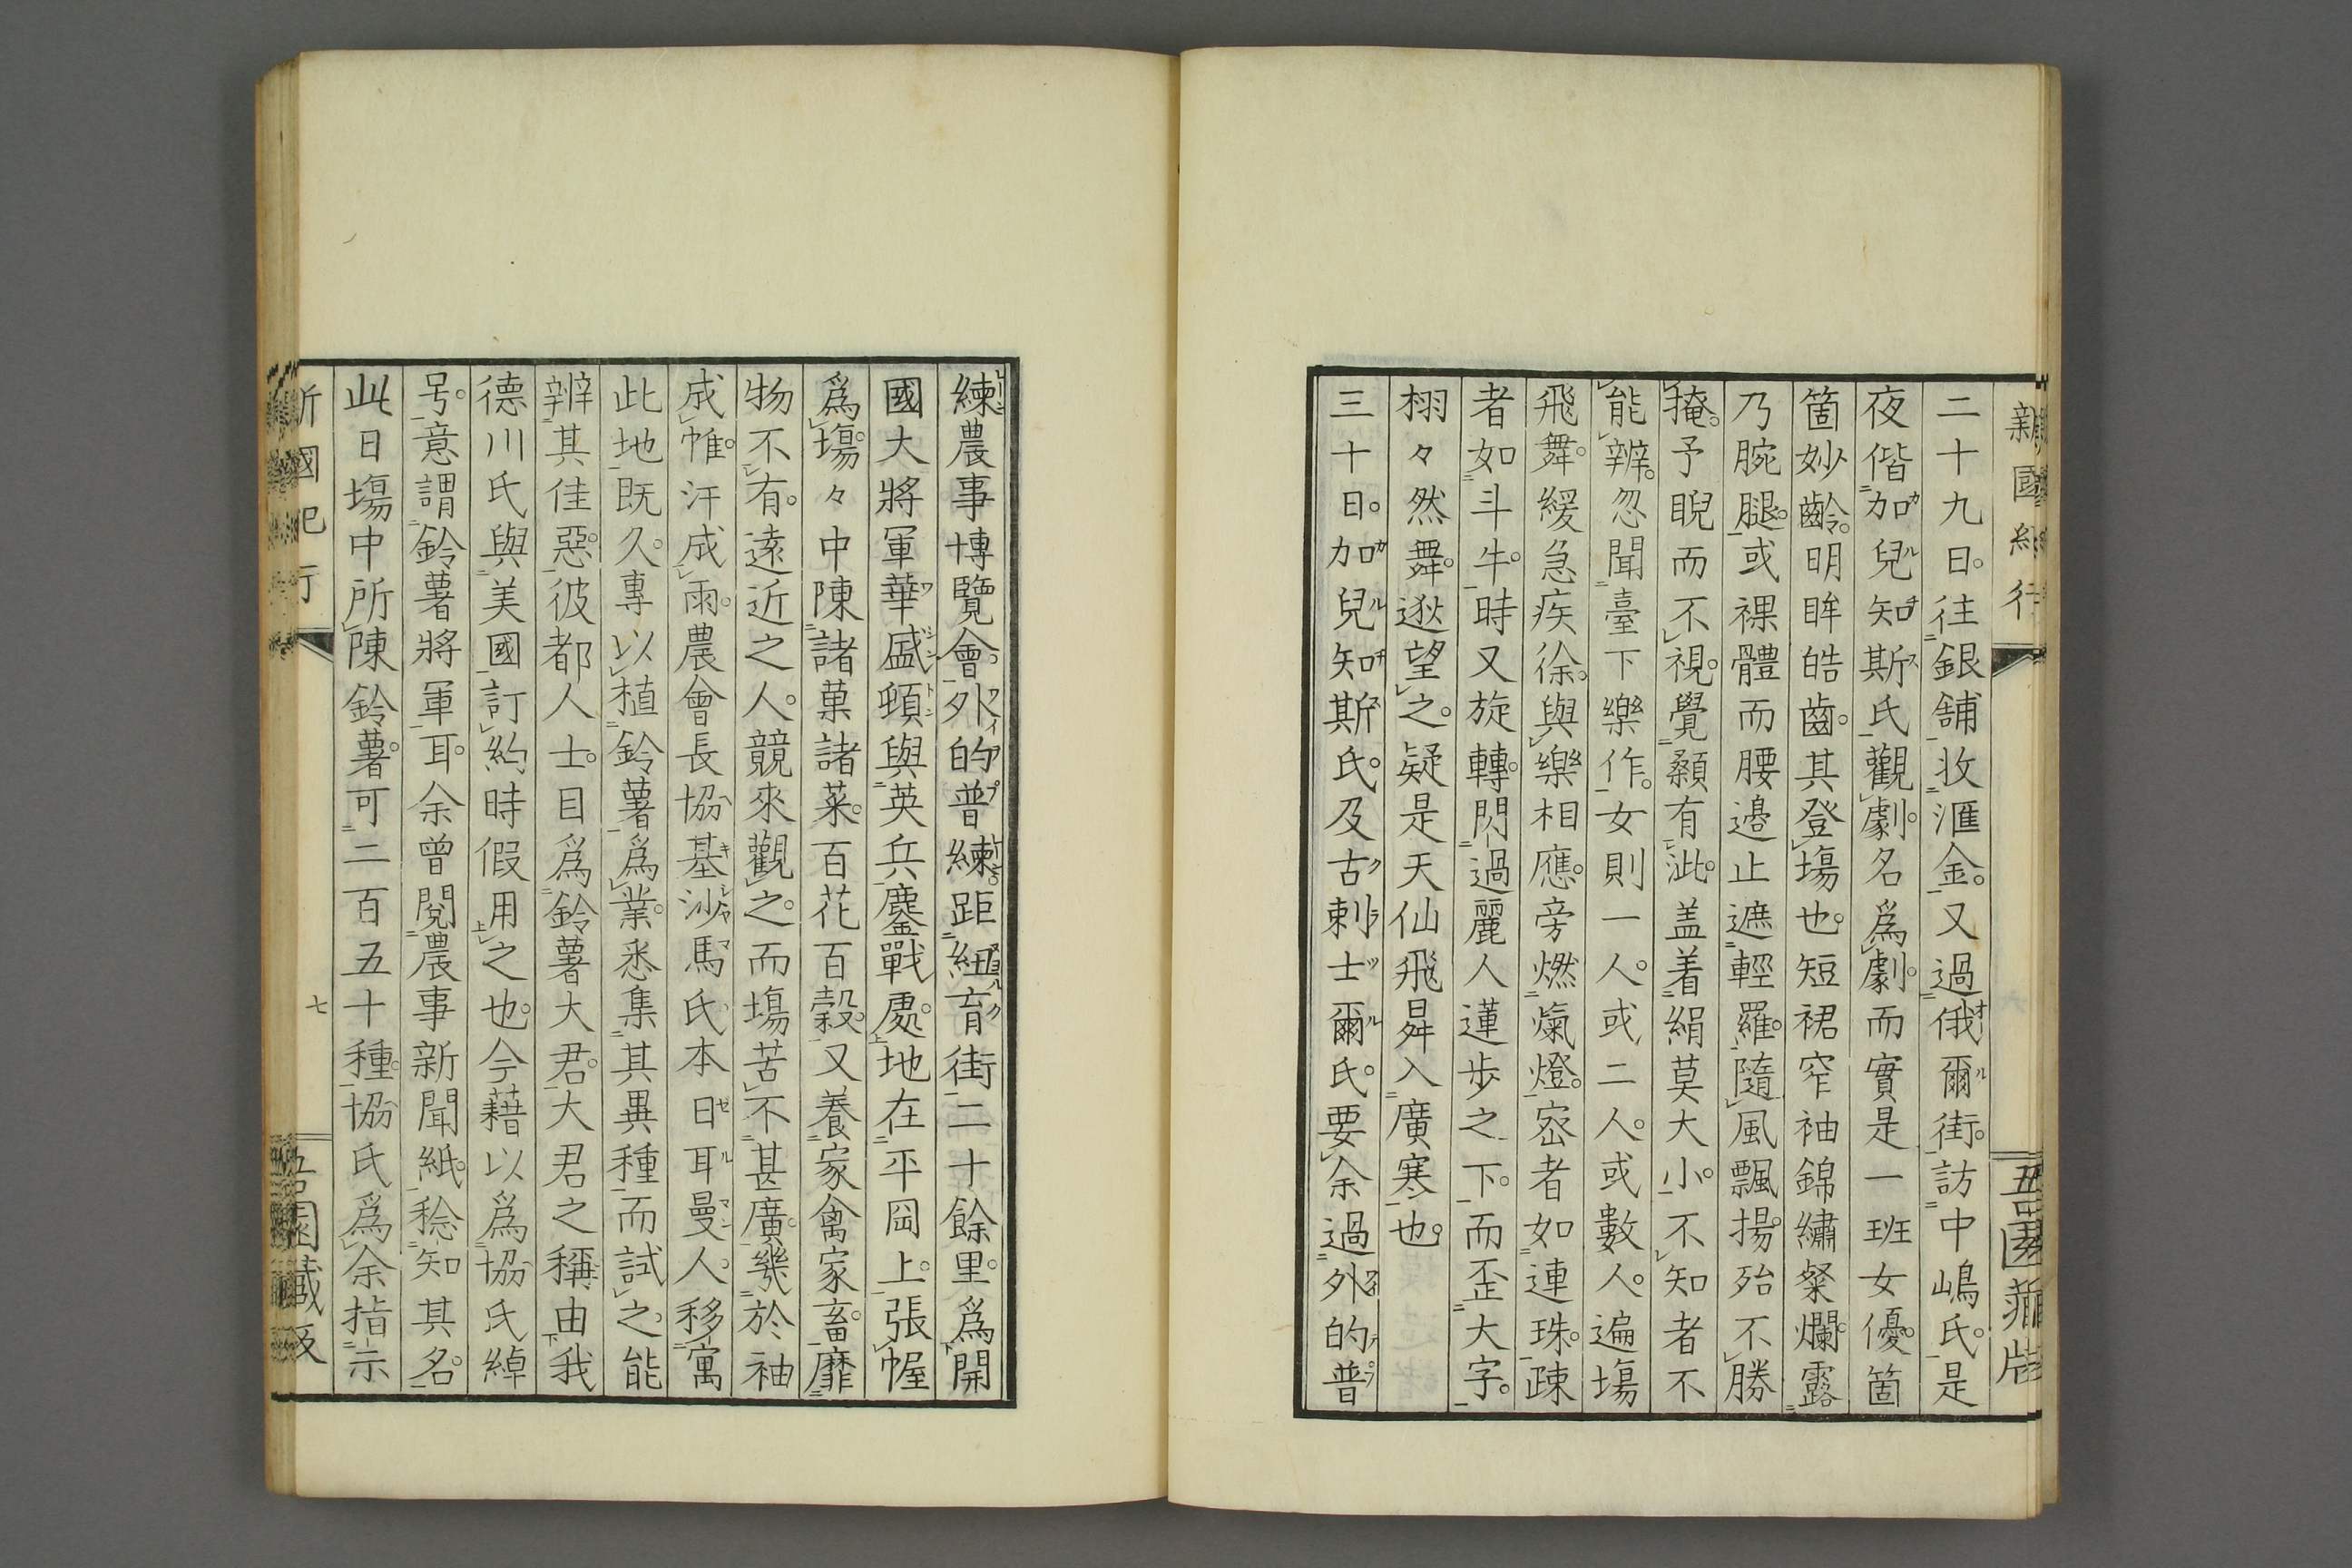 新國紀行
吾園藏版
二十九日。往銀舗收滙金。又過俄爾街。訪中嶋氏。是
夜偕加兒知斯氏觀劇。名爲劇。而實是一班女優。箇
箇妙齡。明眸皓齒。其登塲也。短裙窄袖錦繡粲爛。露
乃腕腿。或裸體而腰邊止遮輕羅。隨風飄揚。殆不勝
掩。予睨而不視。覺顙有泚。盖着絹莫大小。不知者不
能辨。忽聞臺下樂作。女則一人。或二人。或數人。遍塲
飛舞。緩急疾徐。與樂相應。旁燃氣燈。密者如連珠。疎
者如斗牛。時又旋轉。閃過麗人蓮步之下。而歪大字。
栩々然舞。逖望之。疑是天仙飛昇入廣寒也。
三十日。加兒知斯氏。及古剌士爾氏。要余過外的普
練農事博覽會。外的普練。距紐育街二十餘里。爲開
國大將軍華盛頓與英兵鏖戰處。地在平岡上。張幄
爲塲。々中陳諸菓諸菜。百花百穀。又養家禽家畜。靡
物不有。遠近之人。競來觀之。而塲苦不甚廣。幾於袖
成帷。汗成雨。農會長協基沙馬氏本日耳曼人。移寓
此地既久。專以植鈴薯爲業。悉集其異種而試之。能
辨其佳惡。彼都人士。目爲鈴薯大君。大君之稱由我
德川氏與美國訂約時假用之也。今藉以爲協氏綽
号。意謂鈴薯將軍耳。余曾閱農事新聞紙。稔知其名。
此日塲中所陳鈴薯。可二百五十種。協氏爲余指示
新國紀行
七
吾園藏版